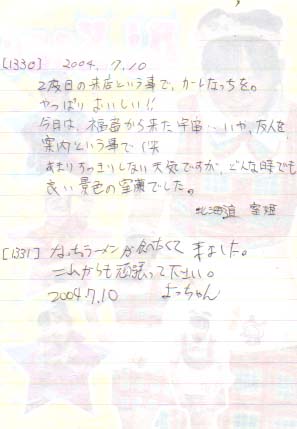 [1330] 2004.7.10
2度目の来店という事で、カレーなっちを。
やっぱりおいしい!!
今日は、福島から来た宇宙…いや、友人を、
案内という事で(笑
あまりすっきりしない天気ですが、どんな時でも
良い景色の室蘭でした。
北海道 室蘭
[1331] なっちラーメンが食べたくて来ました。
これからも頑張って下さい。
2004.7.10 よっちゃん